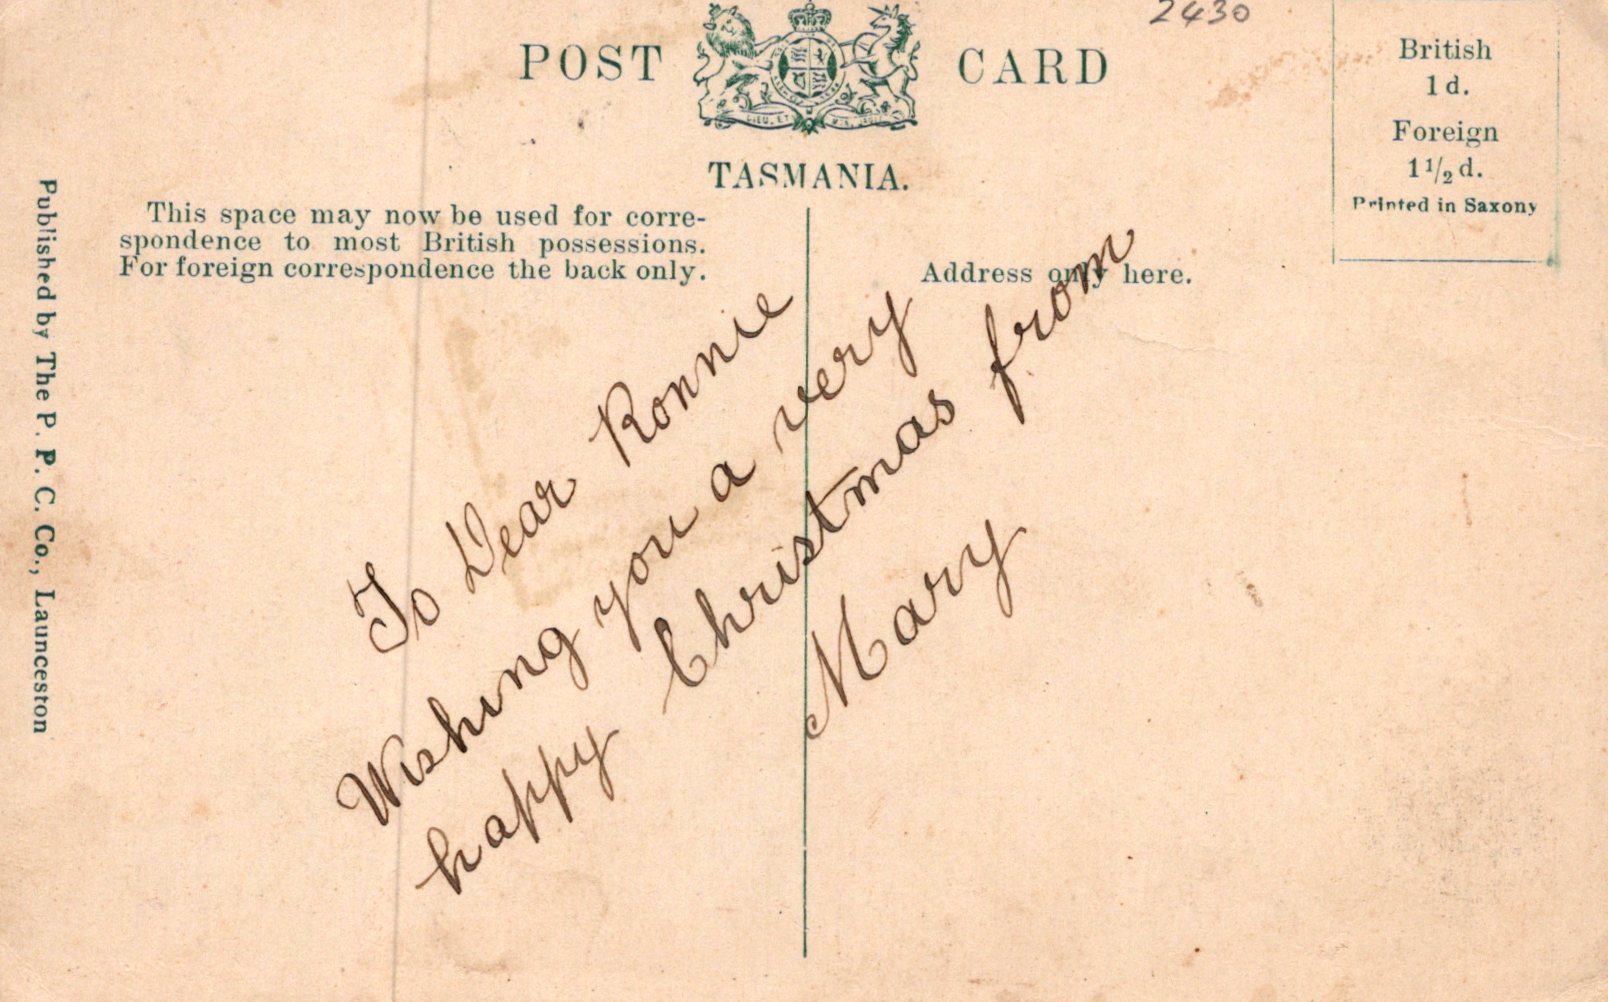 2430
POST CARD
DIEU ET
TASMANIA.
British
1d.
Foreign
1 1/2 d.
Printed in Saxony
This space may now be used for corre-
spondence to most British possessions.
For foreign correspondence the back only.
Address only here.
Published by The P. P. C. Co., Launceston
To Dear Ronnie
Wishing you a very
happy Christmas from
Mary